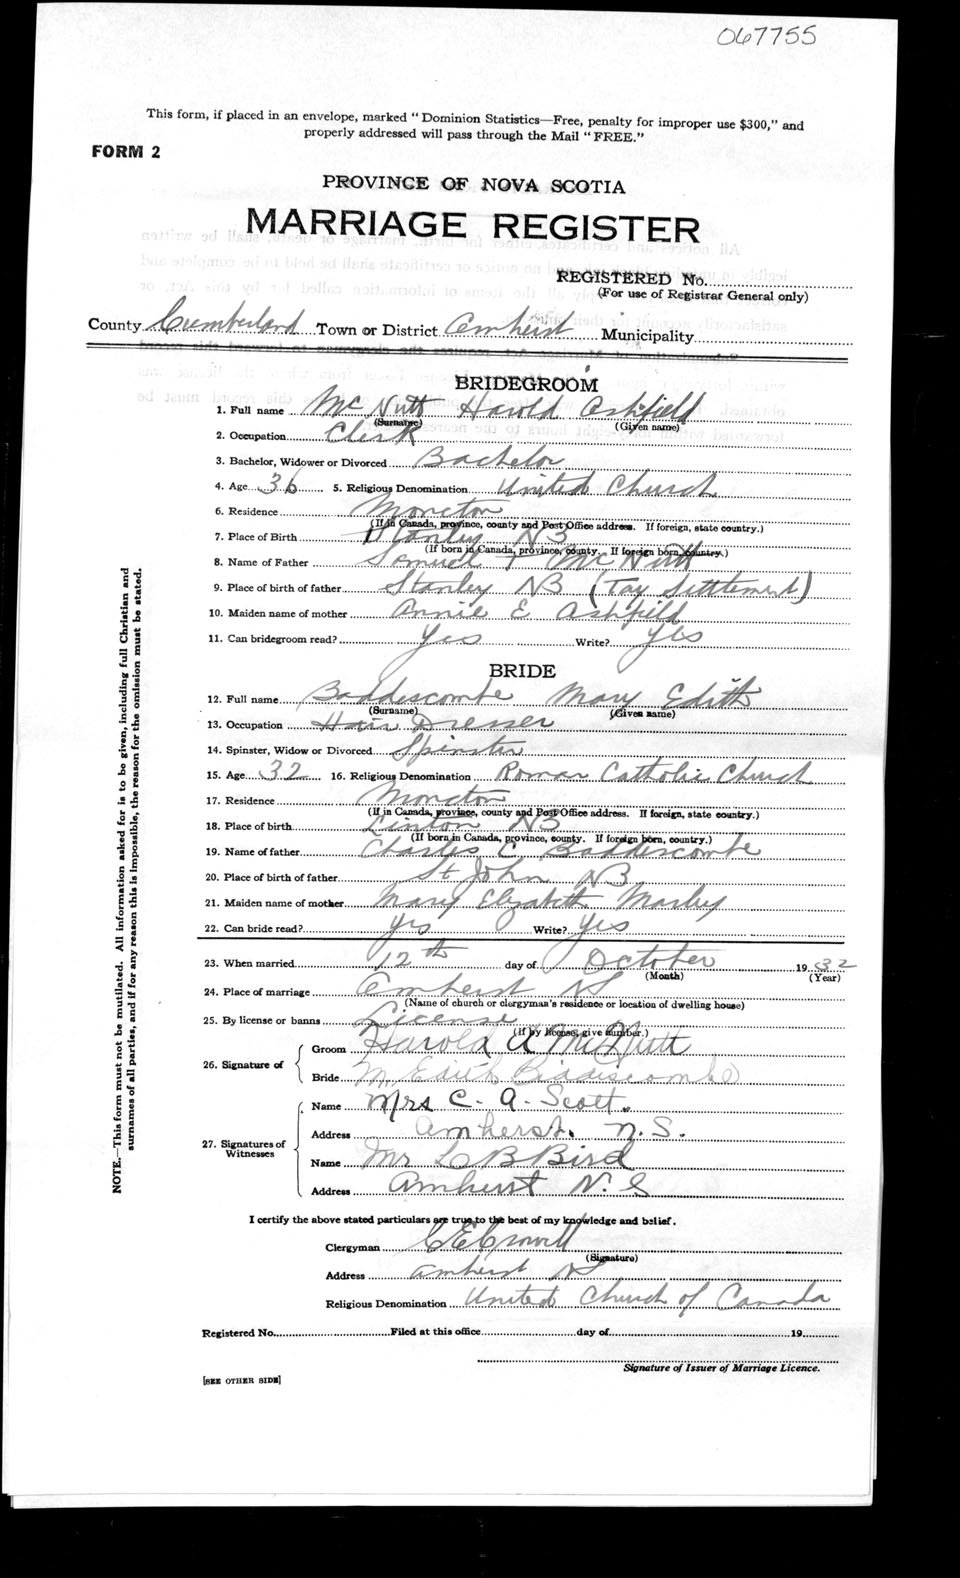 067755
This form, if placed in an envelope, marked "Dominion Statistics—Free, penalty for improper use $300," and
properly addressed will pass through the Mail "FREE."
FORM 2
PROVINCE OF NOVA SCOTIA
MARRIAGE REGISTER
REGISTERED No.
(For use of Registrar General only)
County Cumberland Town or District Amherst Municipality
BRIDEGROOM
1. Full name McNutt Harold Ashfield
(Surname) (Given name)
2. Occupation Clerk
3. Bachelor, Widower or Divorced Bachelor
4. Age 36 5. Religious Denomination United Church
6. Residence Moncton
(If in Canada, province, county and Post Office address. If foreign, state country.)
7. Place of Birth Stanley NB
(If born in Canada, province, county. If foreign born, country.)
8. Name of Father Samuel T McNutt
9. Place of birth of father Stanley NB (Tay Settlement)
10. Maiden name of mother Annie E Ashfield
11. Can bridegroom read? Yes Write? Yes
BRIDE
12. Full name Baddescombe Mary Edith
(Surname) (Given name)
13. Occupation Hair Dresser
14. Spinster, Widow or Divorced Spinster
15. Age 32 16. Religious Denomination Roman Catholic Church
17. Residence Moncton
(If in Canada, province, county and Post Office address. If foreign, state country.)
18. Place of birth Linton NB
(If born in Canada, province, county. If foreign born, country.)
19. Name of father Charles C Baddescombe
20. Place of birth of father St John NB
21. Maiden name of mother Mary Elizabeth Marley
22. Can bride read? Yes Write? Yes
23. When married 12th day of October 1932
(Month) (Year)
24. Place of marriage Amherst NS
(Name of church or clergyman's residence or location of dwelling house)
25. By license or banns License
(If by license, give number.)
26. Signature of
Groom Harold A McNutt
Bride M. Edith Biddiscombe
27. Signatures of Witnesses
Name Mrs C. A. Scott.
Address Amherst. N.S.
Name Mr L B Bird
Address Amherst N.S
I certify the above stated particulars are true to the best of my knowledge and belief.
Clergyman
(Signature)
Address Amherst NS
Religious Denomination United Church of Canada
Registered No. Filed at this office day of 19
Signature of Issuer of Marriage Licence.
[SEE OTHER SIDE]
NOTE.—This form must not be mutilated. All information asked for is to be given, including full Christian and
surnames of all parties, and if for any reason this is impossible, the reason for the omission must be stated.